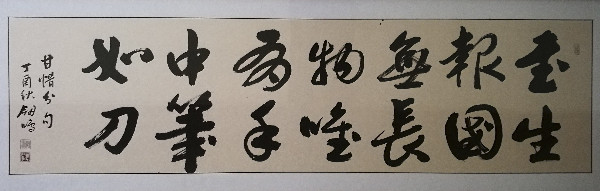 書生
報國
無長
物唯
有手
中筆
如刀
甘惜分句
丁酉秋